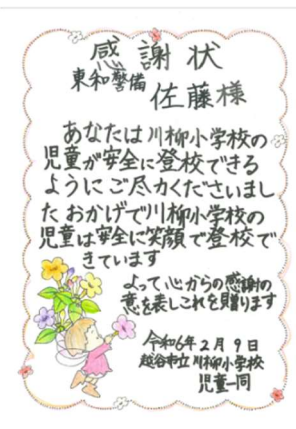 感謝状
東和警備
佐藤様
あなたは川柳小学校の
児童が安全に登校できる
ようにご尽力くださいまし
たおかげで川柳小学校の
児童は安全に笑顔で登校で
きています
よって心からの感謝の
意を表しこれを贈ります
令和6年2月9日
越谷市立川柳小学校
児童一同